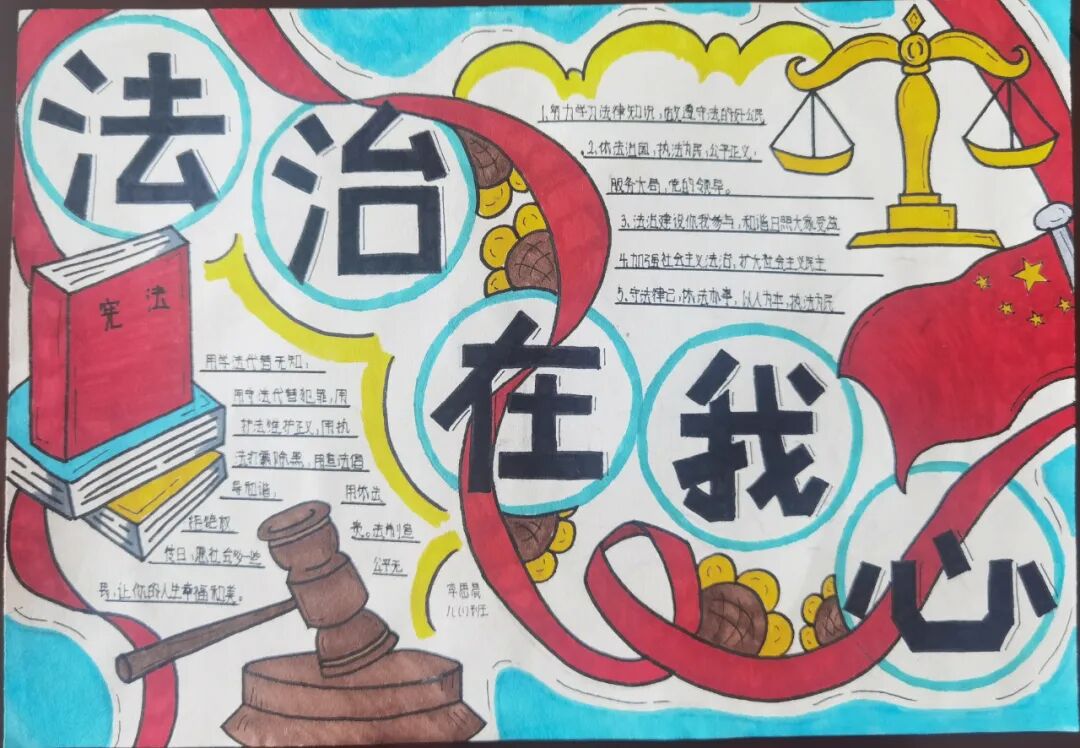 法治在我心
宪法
1.努力学习法律知识,做遵守法的好公民
2.依法治国,执法为民,公平正义,
服务大局,党的领导。
3.法治建设你我参与,和谐日照大家受益
4.加强社会主义法治,扩大社会主义民主
5.守法律己,依法办事,以人为本,执法为民
用学法代替无知,
用守法代替犯罪,用
护法维护正义,用执
法打霸除黑,用普法倡
导和谐,
用依法
拒绝权
贵。法制宣
传日,愿社会少一些
公平无
民,让你的人生幸福和美。
李思
八(1)班